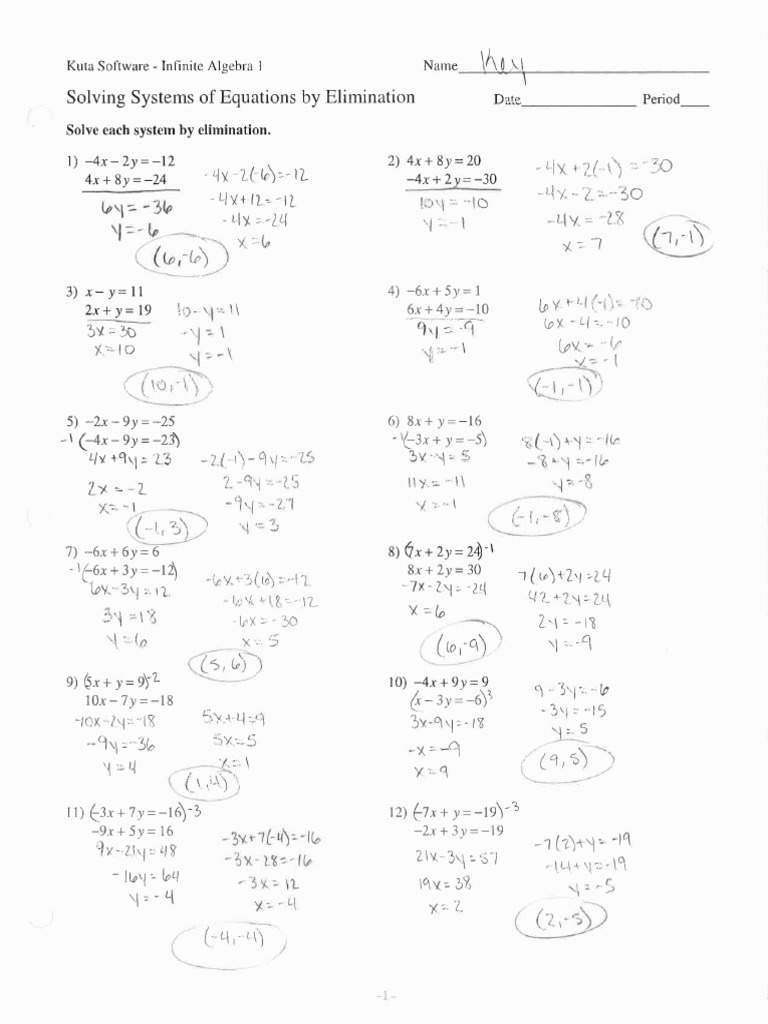 Kuta Software - Infinite Algebra 1
Name Key
Solving Systems of Equations by Elimination
Date Period
Solve each system by elimination.
1) −4x − 2y = −12
4x + 8y = −24
6y = -36
y = -6
-4x-2(-6)=-12
-4x+12=-12
-4x=-24
x=6
(6,-6)
2) 4x + 8y = 20
−4x + 2y = −30
10y = -10
y = -1
-4x+2(-1)=-30
-4x-2=-30
-4x=-28
x=7
(7,-1)
3) x − y = 11
2x + y = 19
3x=30
x=10
10-y=11
-y=1
y=-1
(10,-1)
4) −6x + 5y = 1
6x + 4y = −10
9y=-9
y=-1
6x+4(-1)=-10
6x-4=-10
6x=-6
x=-1
(-1,-1)
5) −2x − 9y = −25
-1(−4x − 9y = −23)
4x+9y=23
2x=-2
x=-1
-2(-1)-9y=-25
2-9y=-25
-9y=-27
y=3
(-1,3)
6) 8x + y = −16
-1(−3x + y = −5)
3x-y=5
11x=-11
x=-1
8(-1)+y=-16
-8+y=-16
y=-8
(-1,-8)
7) −6x + 6y = 6
-1(−6x + 3y = −12)
6x-3y=12
3y=18
y=6
-6x+3(6)=-12
-6x+18=-12
-6x=-30
x=5
(5,6)
8) (7x + 2y = 24)-1
8x + 2y = 30
-7x-2y=-24
x=6
7(6)+2y=24
42+2y=24
2y=-18
y=-9
(6,-9)
9) (5x + y = 9)-2
10x − 7y = −18
-10x-2y=-18
-9y=-36
y=4
5x+4=9
5x=5
x=1
(1,4)
10) −4x + 9y = 9
(x − 3y = −6)3
3x-9y=-18
-x=-9
x=9
9-3y=-6
-3y=-15
y=5
(9,5)
11) (−3x + 7y = −16)-3
−9x + 5y = 16
9x-21y=48
-16y=64
y=-4
-3x+7(-4)=-16
-3x-28=-16
-3x=12
x=-4
(-4,-4)
12) (−7x + y = −19)-3
−2x + 3y = −19
21x-3y=57
19x=38
x=2
-7(2)+y=-19
-14+y=-19
y=-5
(2,-5)
-1-